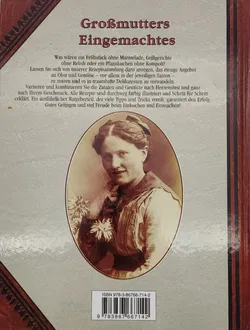 Großmutters
Eingemachtes
Was wären ein Frühstück ohne Marmelade, Grillgerichte
ohne Relish oder ein Pfannkuchen ohne Kompott?
Lassen Sie sich von unserer Rezeptsammlung dazu anregen, das riesige Angebot
an Obst und Gemüse – vor allem in der jeweiligen Saison –
zu nutzen und es in traumhafte Delikatessen zu verwandeln.
Variieren und kombinieren Sie die Zutaten und Gewürze nach Herzenslust und ganz
nach Ihrem Geschmack. Alle Rezepte sind durchweg farbig illustriert und Schritt für Schritt
erklärt. Ein ausführlicher Ratgeberteil, der viele Tipps und Tricks verrät, garantiert den Erfolg.
Gutes Gelingen und viel Freude beim Einkochen und Einmachen!
ISBN 978-3-86766-714-2
9 783867 667142